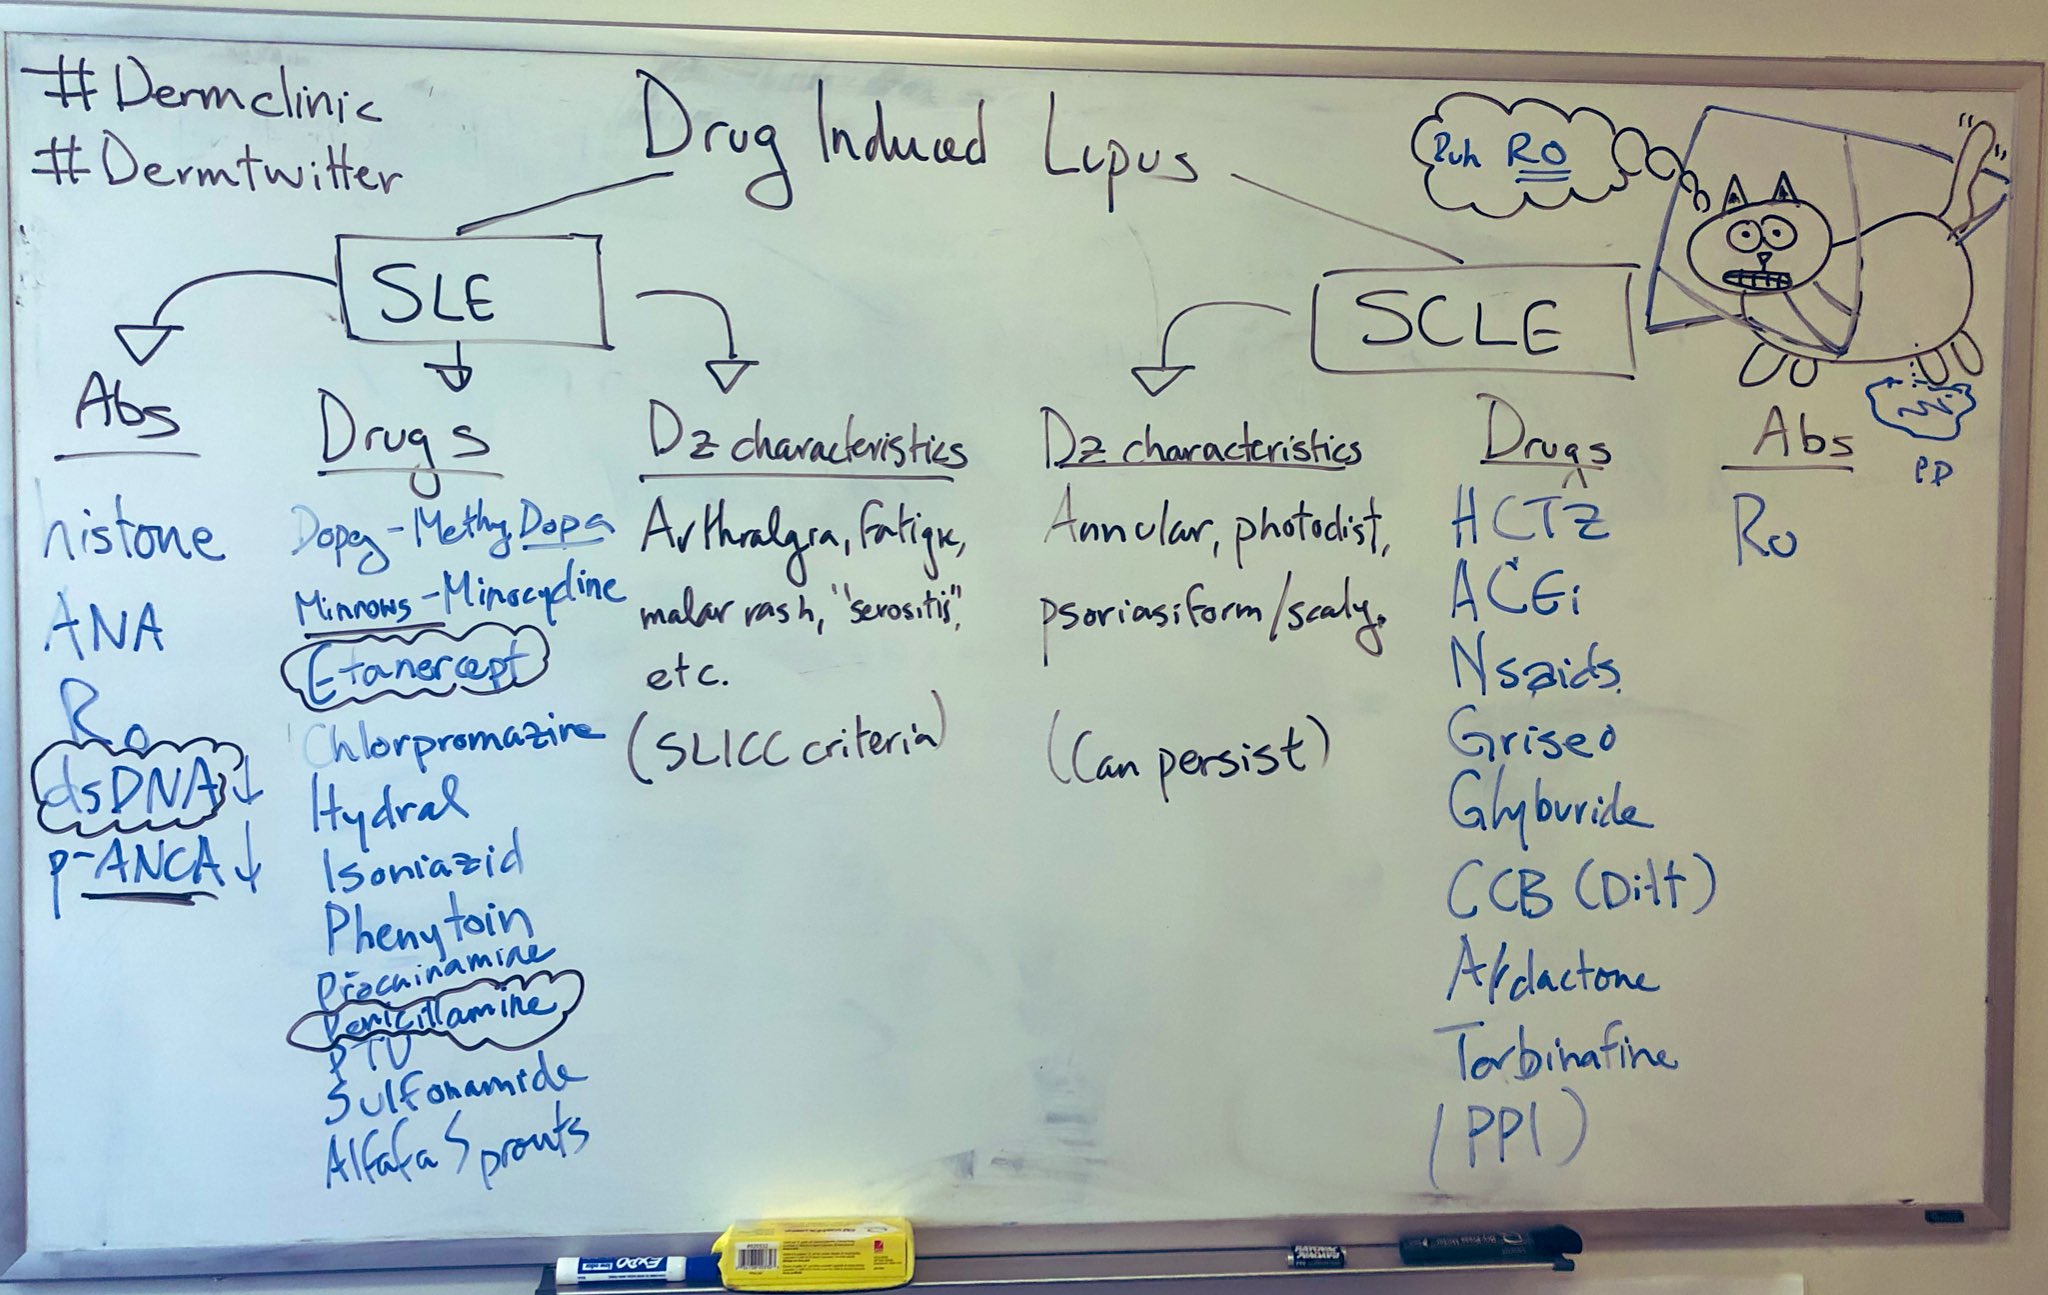 #Dermclinic
#Dermtwitter
Drug Induced Lupus
Ruh RO
SLE
SCLE
PD
Abs
histone
ANA
Ro
dsDNA ↓
p-ANCA ↓
Drugs
Dopey - Methy Dopa
Minnows - Minocycline
Etanercept
Chlorpromazine
Hydral
Isoniazid
Phenytoin
Procainamide
Penicillamine
PTU
Sulfonamide
Alfafa Sprouts
Dz characteristics
Arthralgia, fatigue,
malar rash, "serositis",
etc.
(SLICC criteria)
Dz characteristics
Annular, photodist,
psoriasiform/scaly.
(Can persist)
Drugs
HCTZ
ACEi
Nsaids
Griseo
Glyburide
CCB (Dilt)
Aldactone
Terbinafine
(PPI)
Abs
Ro
EXPO